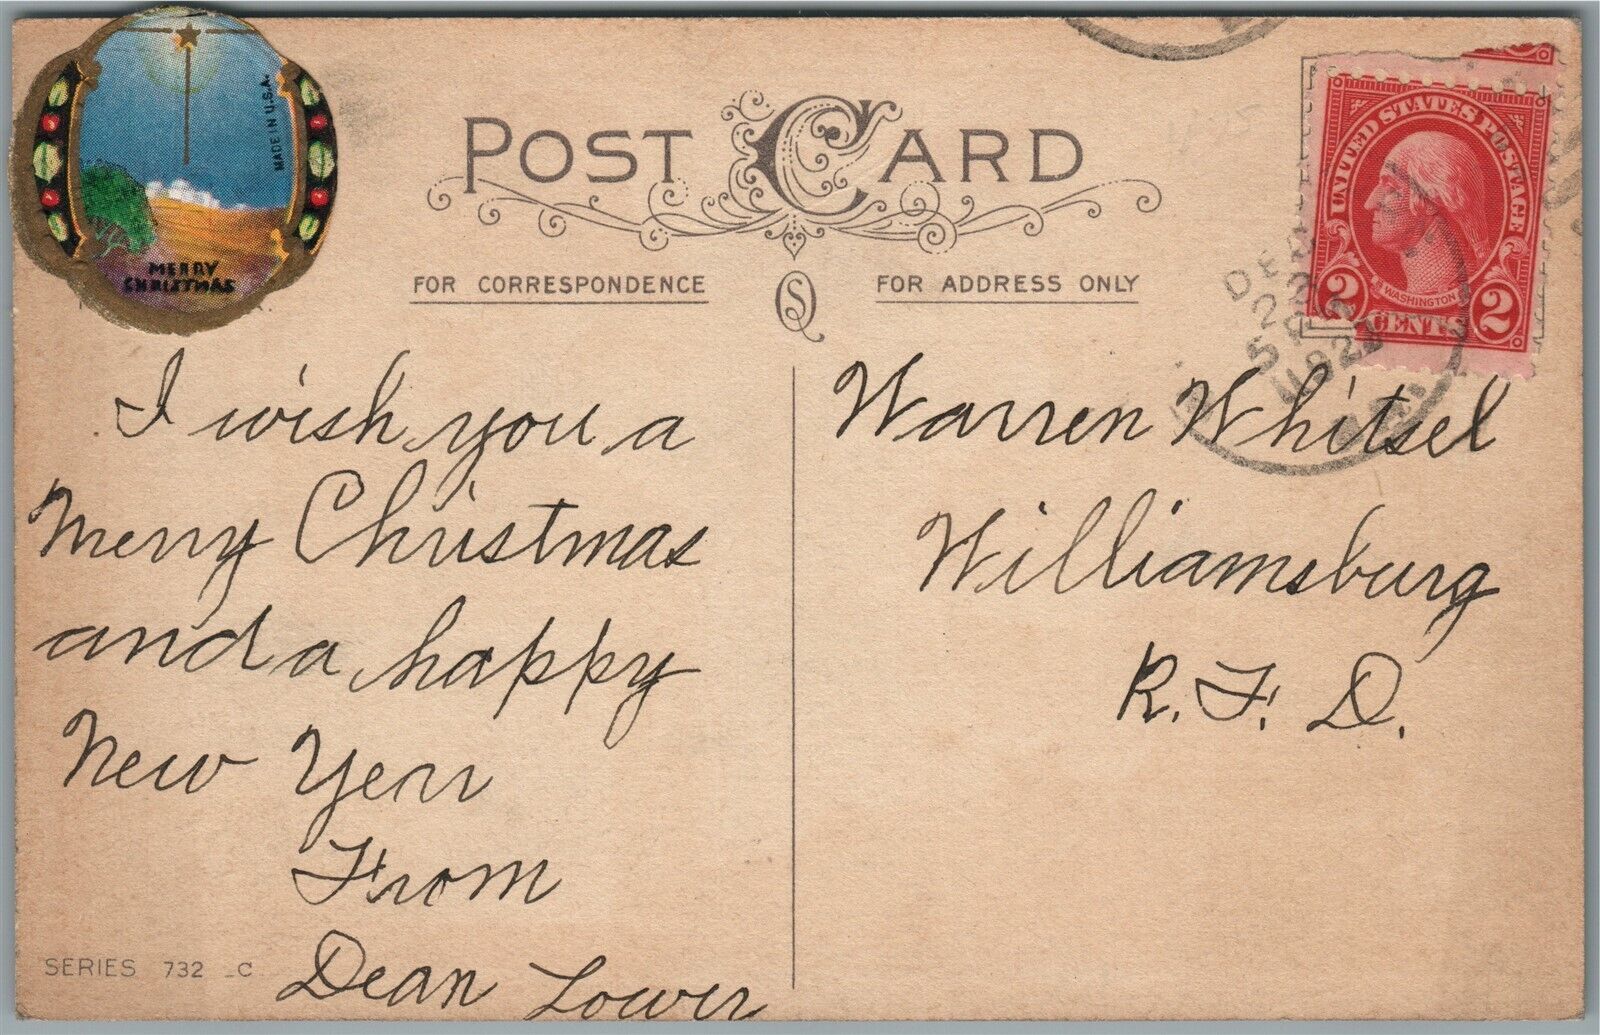 MADE IN U.S.A.
MERRY
CHRISTMAS
POST CARD
FOR CORRESPONDENCE
FOR ADDRESS ONLY
UNITED STATES POSTAGE
WASHINGTON
2 CENTS 2
DEC
22
5 P
192
I wish you a
Merry Christmas
and a happy
New Yerr
From
Dean Lower
Warren Whitsel
Williamsburg
R. F. D.
SERIES 732 _C